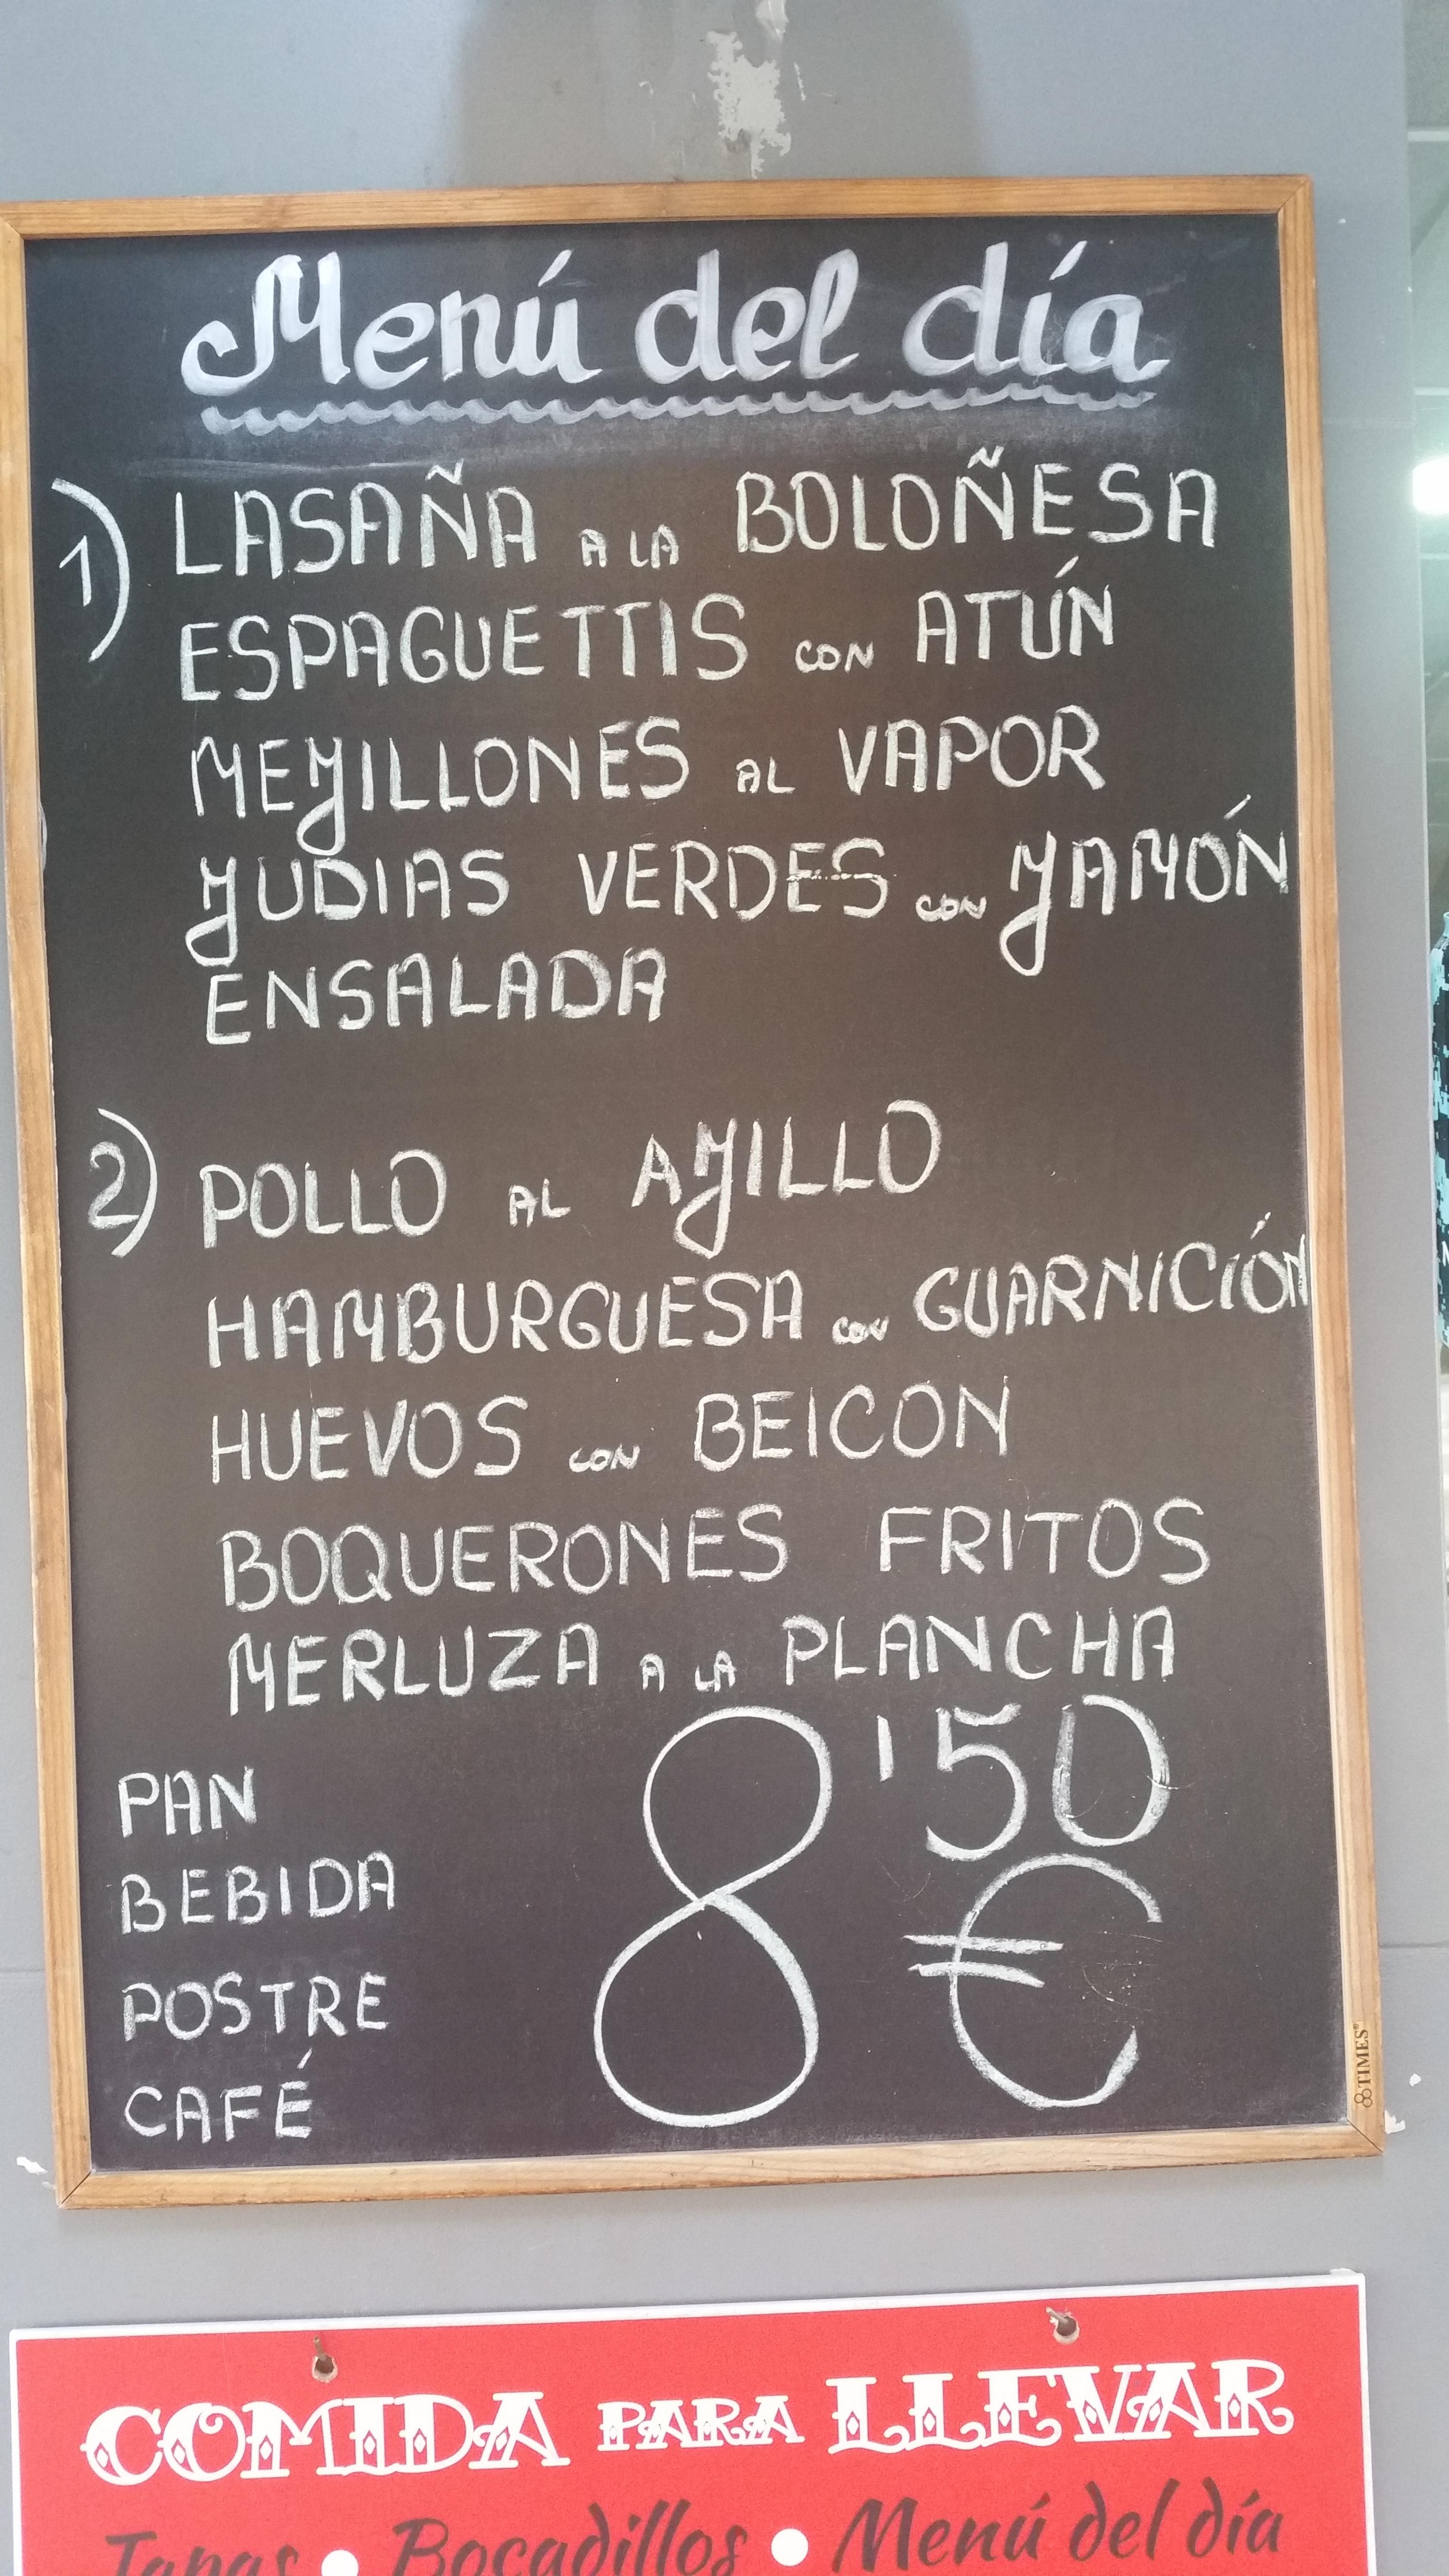 Menú del día
1) LASAÑA A LA BOLOÑESA
ESPAGUETTIS CON ATÚN
MEJILLONES AL VAPOR
JUDIAS VERDES CON JAMÓN
ENSALADA
2) POLLO AL AJILLO
HAMBURGUESA CON GUARNICIÓN
HUEVOS CON BEICON
BOQUERONES FRITOS
MERLUZA A LA PLANCHA
PAN
BEBIDA
POSTRE
CAFÉ
8'50
€
TIMES
COMIDA PARA LLEVAR
Tapas • Bocadillos • Menú del día